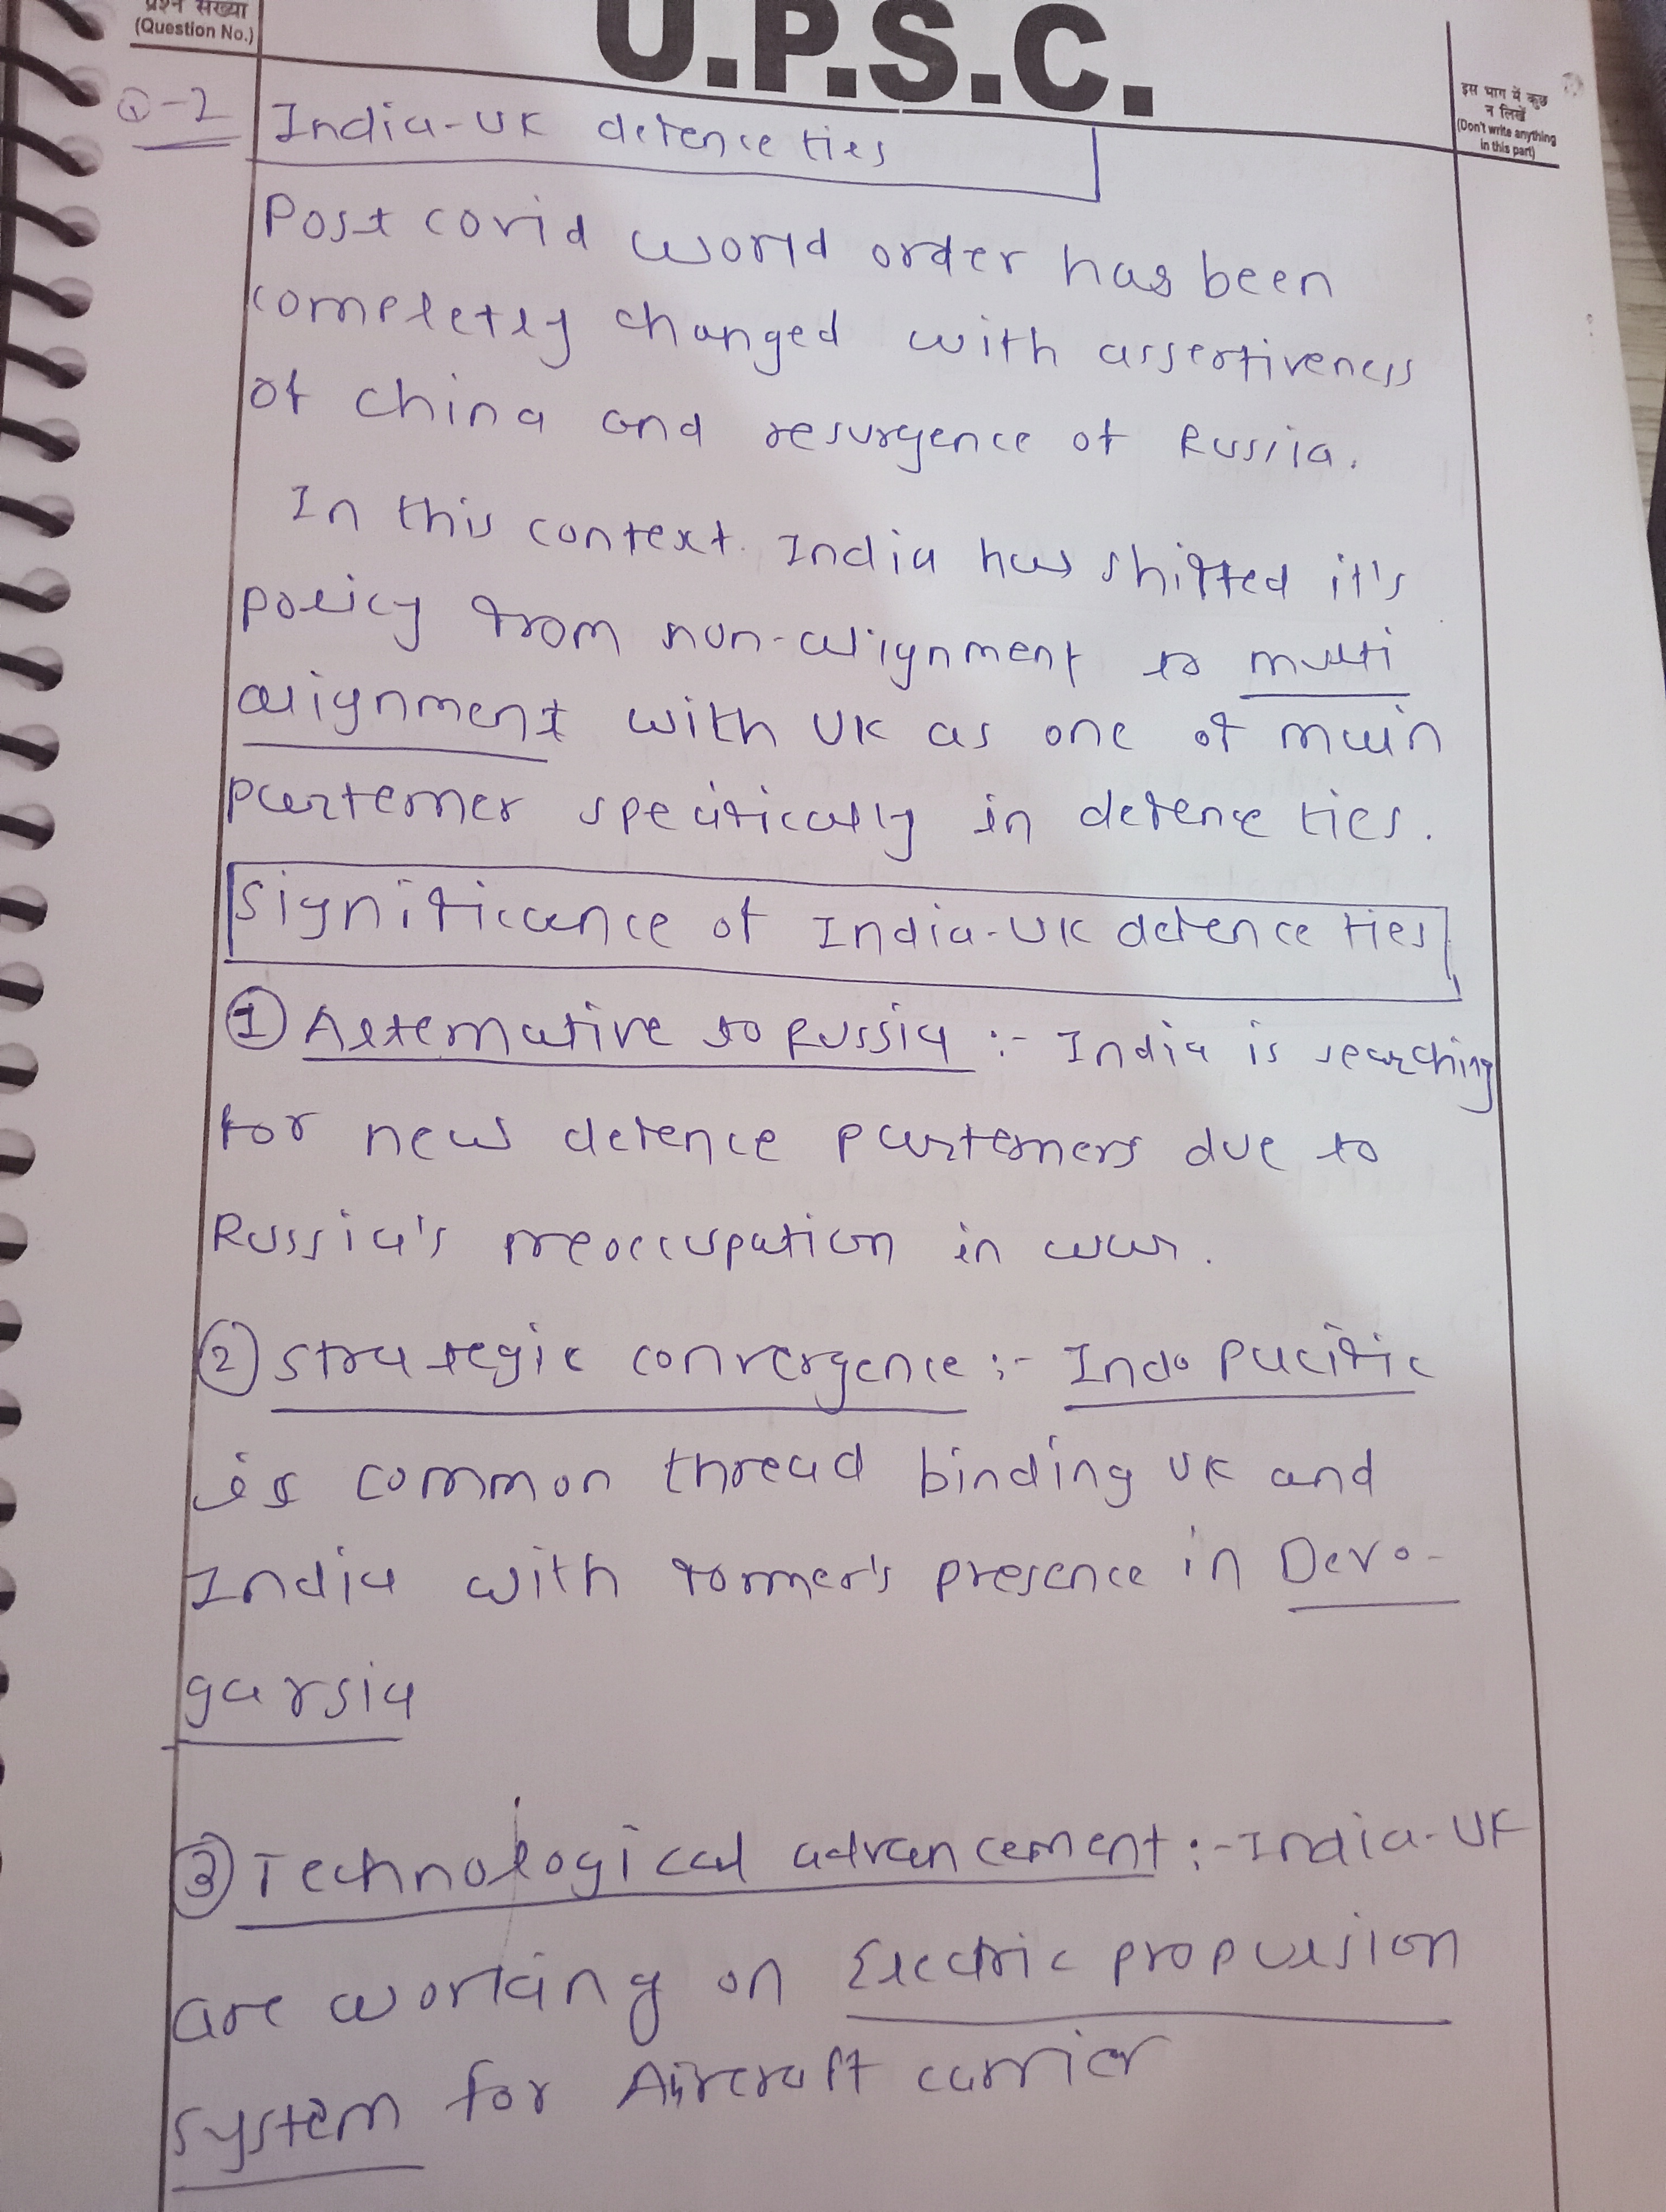 प्रश्न संख्या
(Question No.)
U.P.S.C.
इस भाग में कुछ
न लिखें
(Don't write anything
in this part)
Q-2 India-UK defence ties
Post covid world order has been
completely changed with assertiveness
of china and resurgence of Russia.
In this context. India has shifted it's
policy from non-alignment to multi
alignment with UK as one of main
parterner specifically in defence ties.
Significance of India-UK defence ties
① Alternative to Russia :- India is searching
for new defence parterners due to
Russia's preoccupation in war.
② Strategic convergence :- Indo Pacific
is common thread binding UK and
India with former's presence in Devo-
garsia
③ Technological advancement :- India-UK
are working on Electric propulsion
system for Aircraft carrier